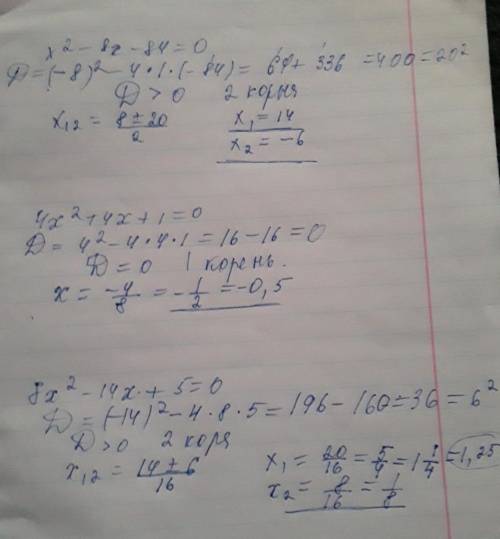 x² - 8x - 84 = 0
D = (-8)² - 4 • 1 • (-84) = 64 + 336 = 400 = 20²
D > 0 2 корня
x₁,₂ = (8 ± 20)/2 x₁ = 14
x₂ = -6
4x² + 4x + 1 = 0
D = 4² - 4 • 4 • 1 = 16 - 16 = 0
D = 0 1 корень.
x = -4/8 = -1/2 = -0,5
8x² - 14x + 5 = 0
D = (-14)² - 4 • 8 • 5 = 196 - 160 = 36 = 6²
D > 0 2 коря
x₁,₂ = (14 ± 6)/16 x₁ = 20/16 = 5/4 = 1 1/4 = 1,25
x₂ = 8/16 = 1/8